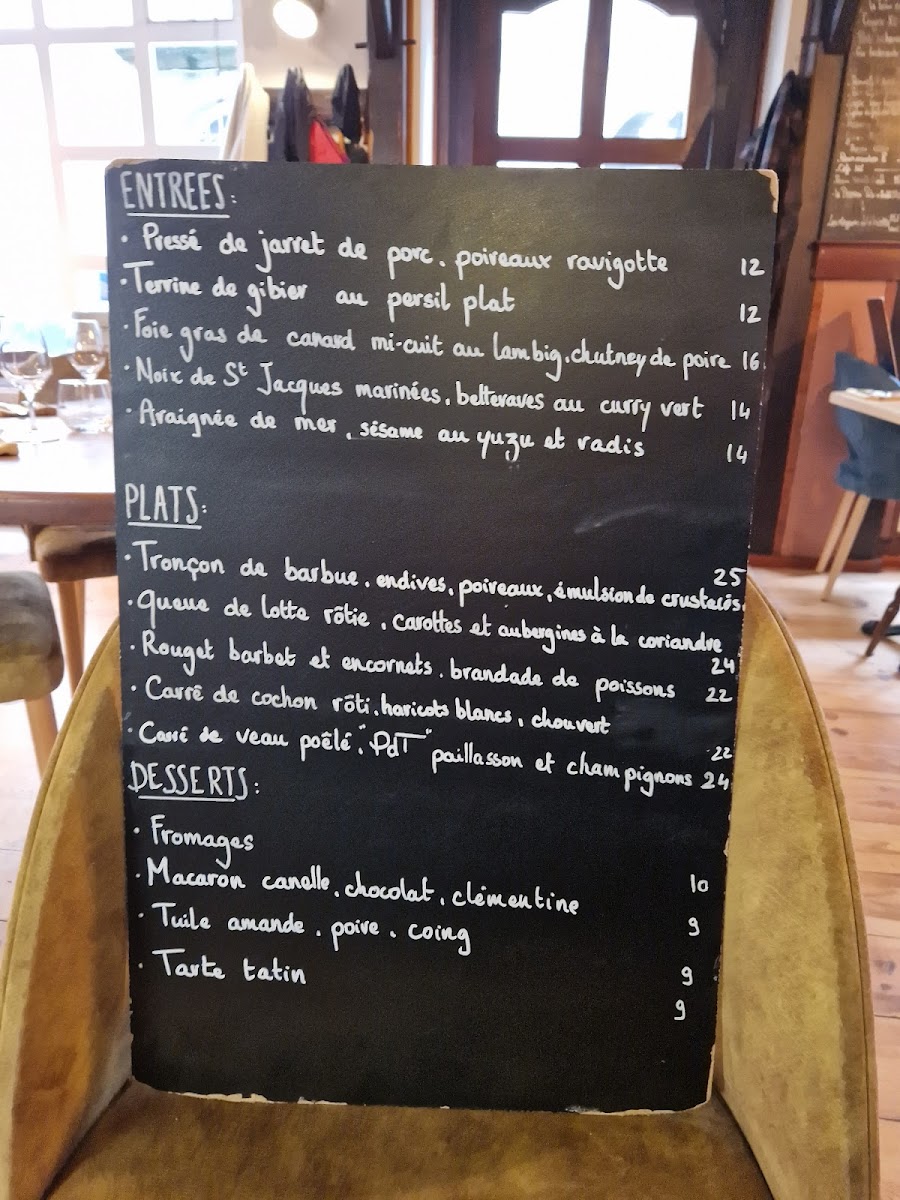 ENTREES:
· Pressé de jarret de porc. poireaux ravigotte 12
· Terrine de gibier au persil plat 12
· Foie gras de canard mi-cuit au lambig. chutney de poire 16
· Noix de St Jacques marinées. betteraves au curry vert 14
· Araignée de mer. sésame au yuzu et radis 14
PLATS:
· Tronçon de barbue. endives. poireaux. émulsion de crustacés 25
· Queue de lotte rôtie. carottes et aubergines à la coriandre 24
· Rouget barbet et encornets. brandade de poissons 22
· Carré de cochon rôti. haricots blancs, chou vert 22
· Carré de veau poêlé. "PdT" paillasson et champignons 24
DESSERTS:
· Fromages 10
· Macaron canelle. chocolat. clémentine 9
· Tuile amande. poire. coing 9
· Tarte tatin 9